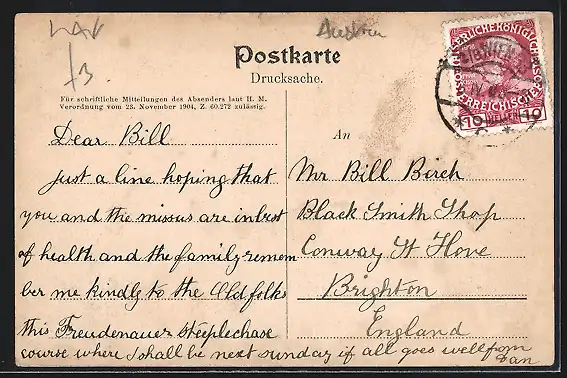 Austria
Postkarte
Drucksache.
Für schriftliche Mitteilungen des Absenders laut H. M.
Verordnung vom 23. November 1904, Z. 60.272 zulässig.
An
Dear Bill
Just a line hoping that
you and the missus are in best
of health and the family remem
ber me kindly to the Old folks
this Freudenauer steeplechase
course where I shall be next sunday if all goes well from
Dan
Mr Bill Birch
Black Smith Shop
Conway St Hove
Brighton
England
10 HELLER 10